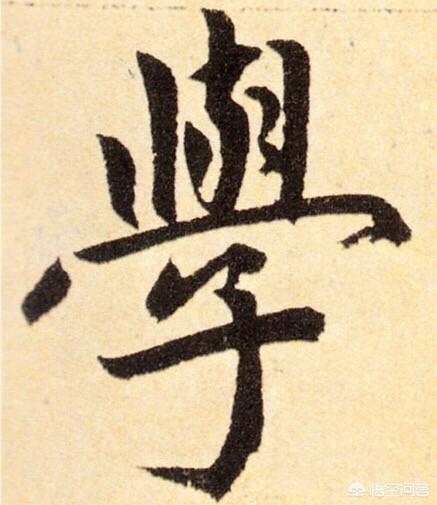 學
悟空问答